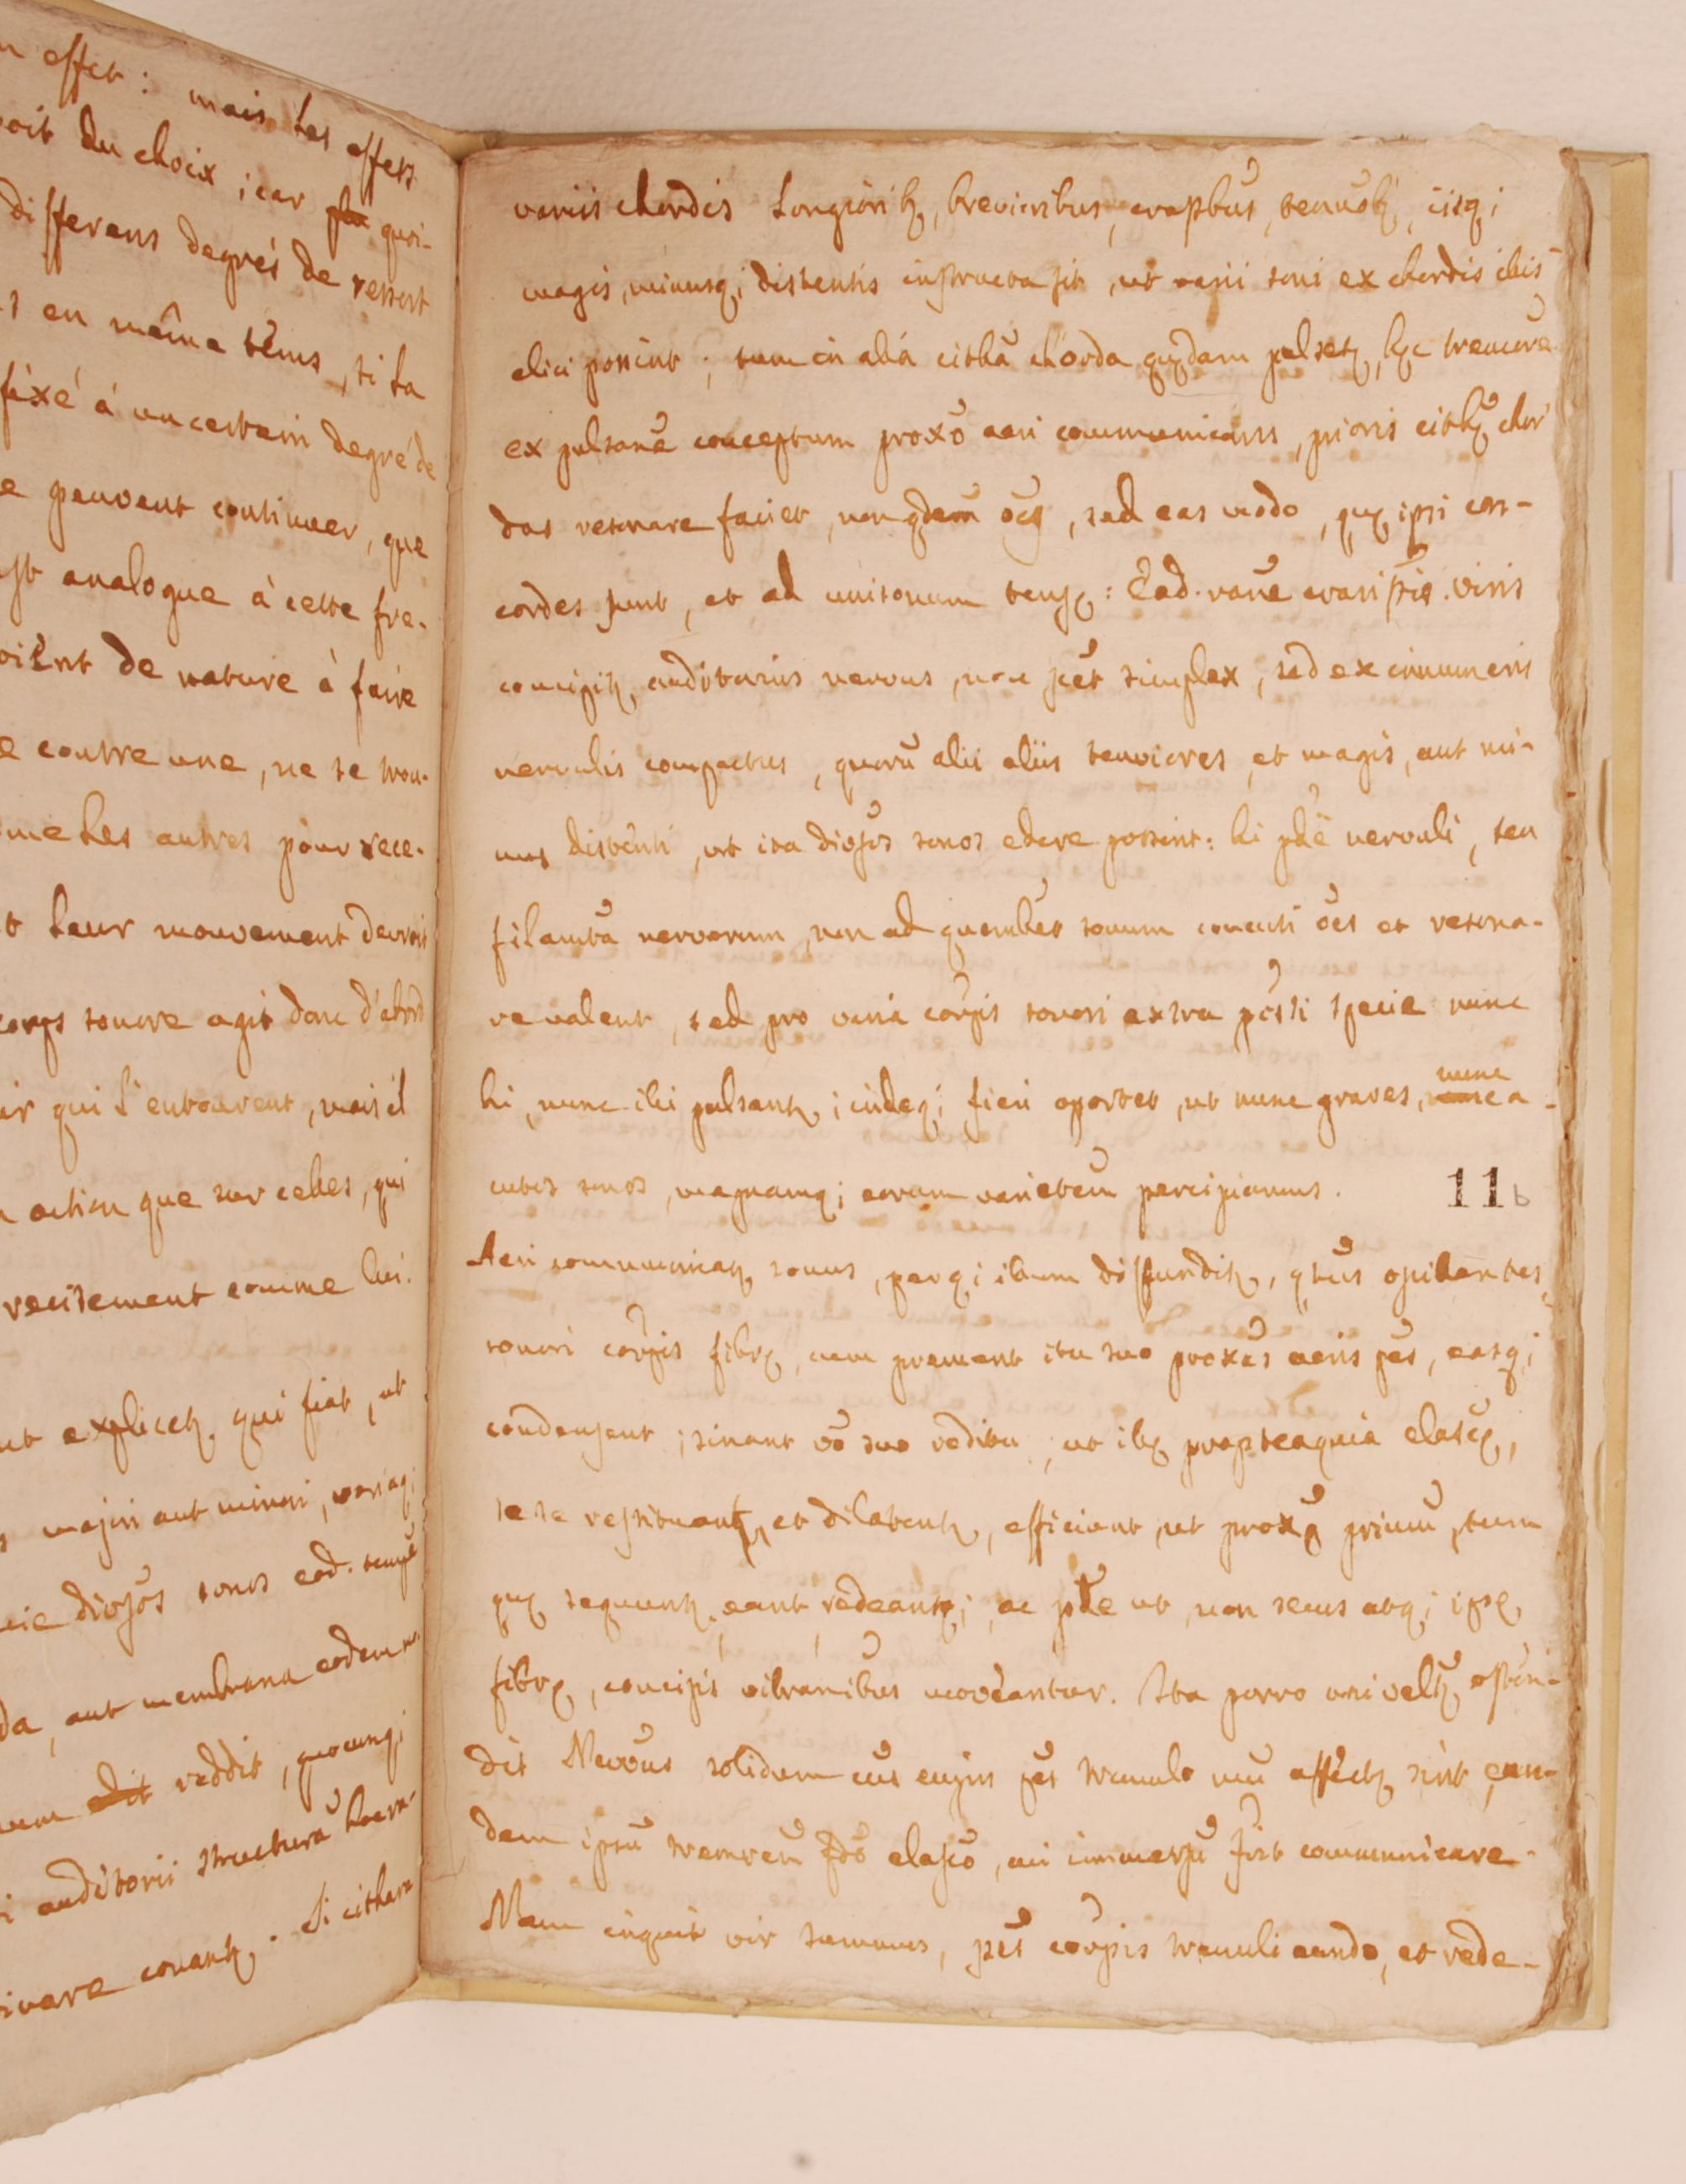 effet : mais les effets
oit du choix ; car plu quoi-
differens degrés de ressort
en même têms , si la
fixé á un certain degré de
e peuvent continuer , que
st analogue à cette fre-
oiènt de nature à faire
e contre une , ne se trou-
me les autres pour rece-
t leur mouvement devroit
corps sonore agit donc d'abord
ir qui l'entourent , mais il
action que sur celles , qui
recisement comme lui.
ut explicetꝫ qui fiat , ut
majori aut minori , variaq;
cie diversos sonos eod. temp̃
da , aut membrana eodem
dit reddit , quocunq;
i auditorii structurâ
conantꝫ . Si cithara
variis chordis longiorib9 , brevioribus , tenuiõb9 , iisq;
magis , minusq; distentis instructa sit , ut varii soni ex chordis illis
elici possint ; tum in aliâ cithã chorda quædam pulsetꝫ , hæc
ex pulsanẽ conceptum proxõ aeri communicans , prioris cithæ chor
das resonare faciet , non qdem oẽs , sed eas modo , quæ ipsi con-
cordes sunt , et ad unisonum tensæ : Ead. viris
concipitꝫ auditorius nervus , non scet simplex , sed ex innumeris
nervulis compactus , quorũ alii aliis tenuiores , et magis , aut mi-
nus distenti , ut ita divsos sonos edere possint : hi nervuli , seu
filamta nervorum , non ad quemlibet sonum concuti oẽs et resona-
re valent , sed pro variâ corpis sonori extra posti specie nunc
hi , nunc illi pulsantꝫ ; indeq; fieri oportet , ut nunc graves , nunc nunc a-
cutos sonos , magnamq; eorum varietem percipiamus .
11b
Aeri communicatꝫ sonus , perq; illum diffunditꝫ ,
sonori corpis fibræ , cum premant itu suo proxas aeris pes , easq;
condensent ; sinant vo suo reditu , ut illæ propteaquia elascæ ,
se se restituantꝫ , et dilatentꝫ , efficiant , ut proxæ primũ , tum
quæ sequuntꝫ eant redeantq; , ac ut , non secus atq; ipsæ
fibræ , concipis vibranibus moveantur . Ita porro univeltꝫ osten-
dit solidum cujus pes tremulo mu affectæ sint , ean-
dem ipsũ fldo elasco , cui immersũ sit communicare .
Nam inquit vir summus , pes corpis tremuli eundo , et rede-